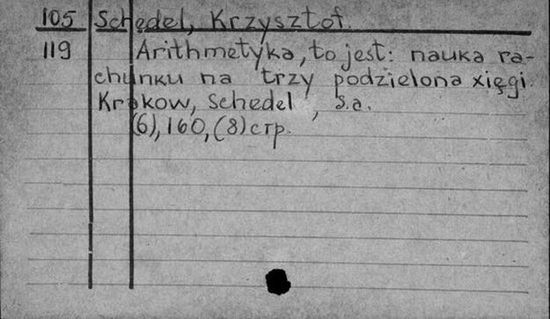 105 Schedel, Krzysztof.
119 Arithmetyka, to jest: nauka ra-
chunku na trzy podzielona xięgi.
Krakow, Schedel, s.a.
(6), 160, (8) стр.